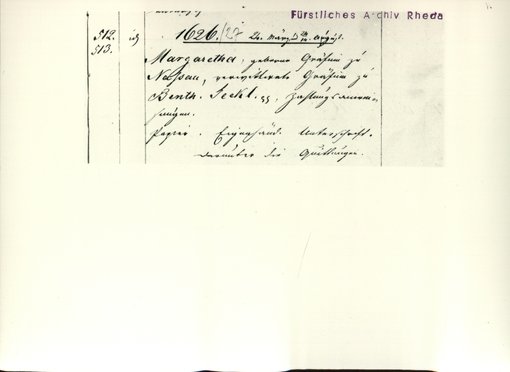 Fürstliches Archiv Rheda
512. id
513.
1626./27 24. März u. August.
Margaretha, geborne Gräfin zu
Nassau, verwittwete Gräfin zu
Benth. Teckl. Zahlungsanwei-
sungen.
Papier. Eigenhänd. Unterschrift.
darunter die Quittungen.